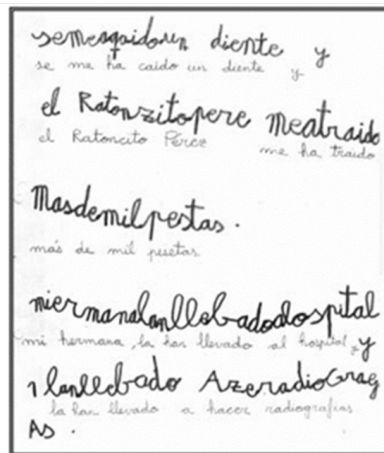 semeaqaidoun diente y
se me ha caído un diente y
el Ratonzitopere meatraido
el Ratoncito Pérez me ha traído
Masdemilpestas.
más de mil pesetas
miermanalanllebadoalospital
mi hermana, la han llevado al hospital, y
y lanllebado AzeradioGraG
la han llevado a hacer radiografías
As.